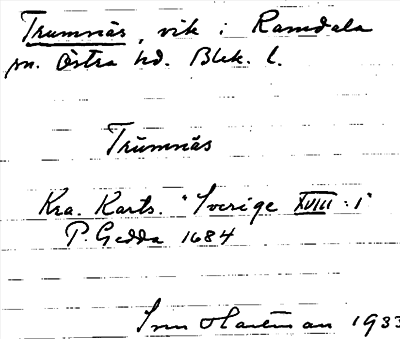 Trumnäs, vik i Ramdala
sn. Östra hd. Blek. l.
Trŭmnäs
Kra. Karts. "Sverige XVIII: 1"
P. Gedda 1684
1933